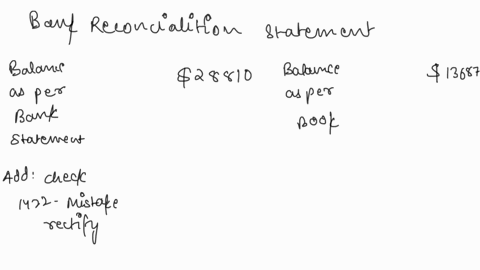 Bank Reconcialition Statement
Balance as per Bank Statement
$28810
Balance as per Book
$13687
Add: check 1422 - Mistake rectify